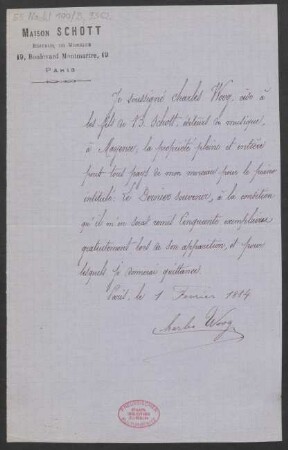 MAISON SCHOTT
EDITEUR DE MUSIQUE
19, Boulevard Montmartre, 19
PARIS
Je soussigné Charles Worg, cède à
les fils de B. Schott, éditeurs de musique,
à Mayence, la propriété pleine et entière
pour tous pays de mon morceau pour le piano
intitulé: Le Dernier souvenir, à la condition
qu'il m'en sera remis Cinquante exemplaires
gratuitement lors de son apparition, et pour
lesquels je donnerai quittance.
Paris le 1 Février 1884
Charles Worg